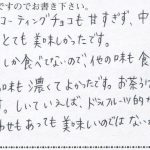 ですのでお書き下さい。
コーティングチョコも甘すぎず、中
とても美味しかったです。
しか食べてないので他の味も食
の味も濃くてよかったです。お茶う
す。しいていえば、ドシュフレ的な
わせもあっても美味しいのではないか